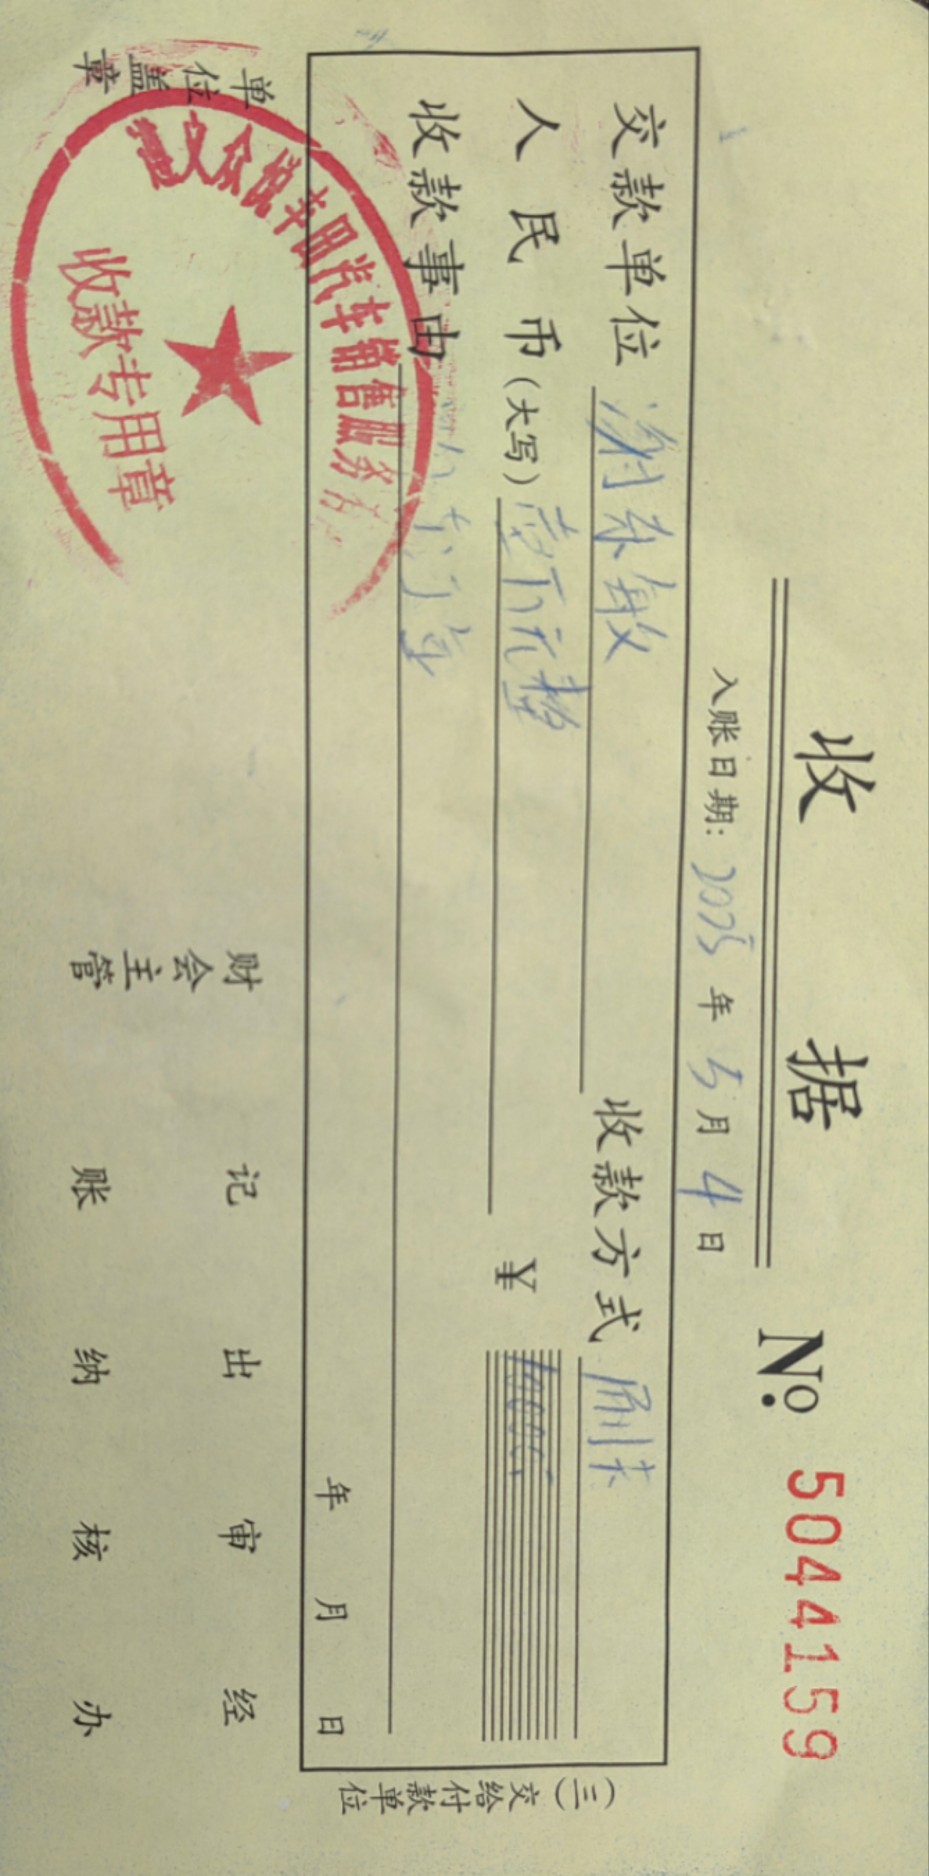 收 据
№ 5044159
入账日期: 2025 年 5 月 4 日
交款单位 收款方式 刷卡
人民币(大写) 壹万元整 ¥
收款事由
年 月 日
(三)交给付款单位
单位盖章 财会主管 记账 出纳 审核 经办
众悦车圈汽车销售服务
收款专用章